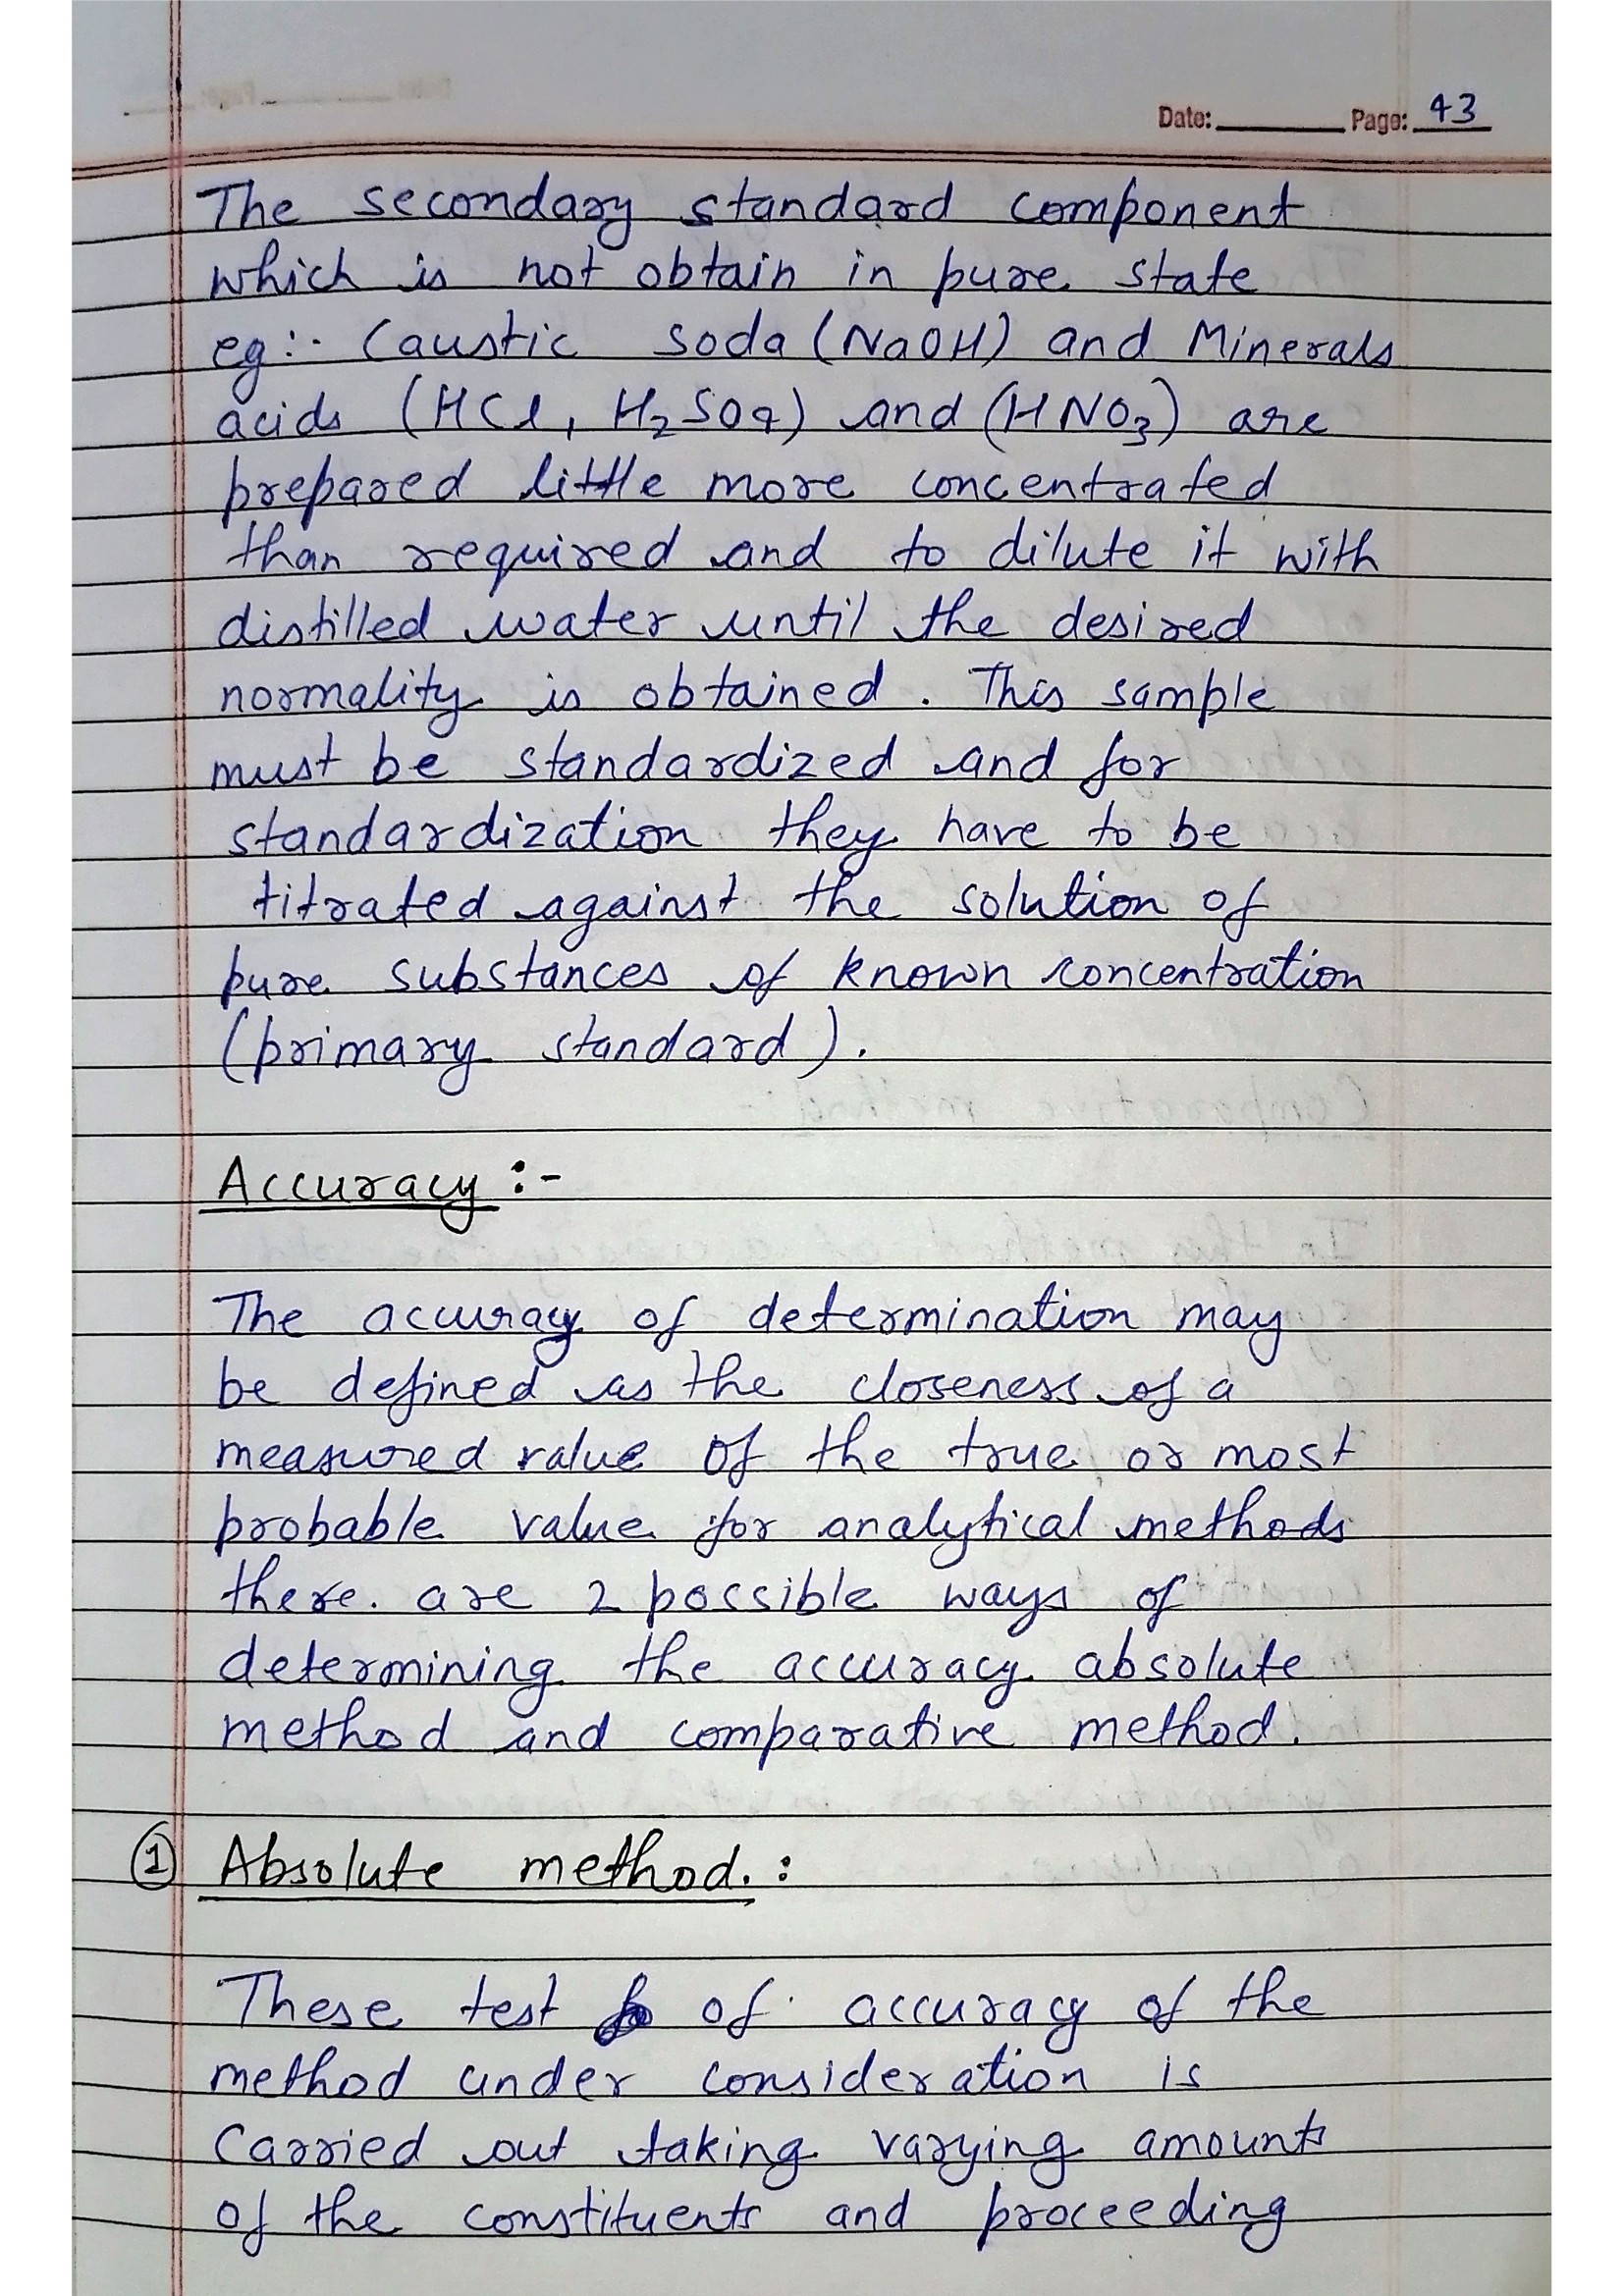 Date: Page: 43
The secondary standard component
which is not obtain in pure state
eg:- Caustic soda (NaOH) and Minerals
acids (HCl, H₂SO₄) and (HNO₃) are
prepared little more concentrated
than required and to dilute it with
distilled water until the desired
normality is obtained. This sample
must be standardized and for
standardization they have to be
titrated against the solution of
pure substances of known concentration
(primary standard).
Accuracy :-
The accuracy of determination may
be defined as the closeness of a
measured value of the true or most
probable value for analytical methods
there. are 2 possible ways of
determining the accuracy absolute
method and comparative method.
① Absolute method. :
These test of accuracy of the
method under consideration is
Carried out taking varying amounts
of the constituents and proceeding